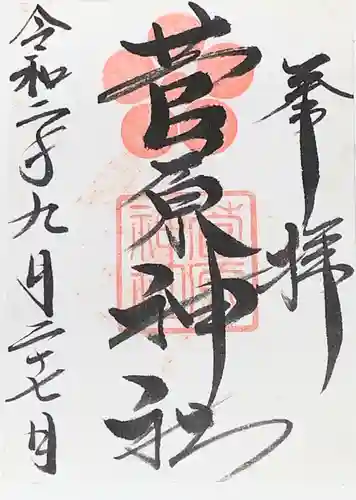 奉拝
菅原神社
令和二年九月二十七日